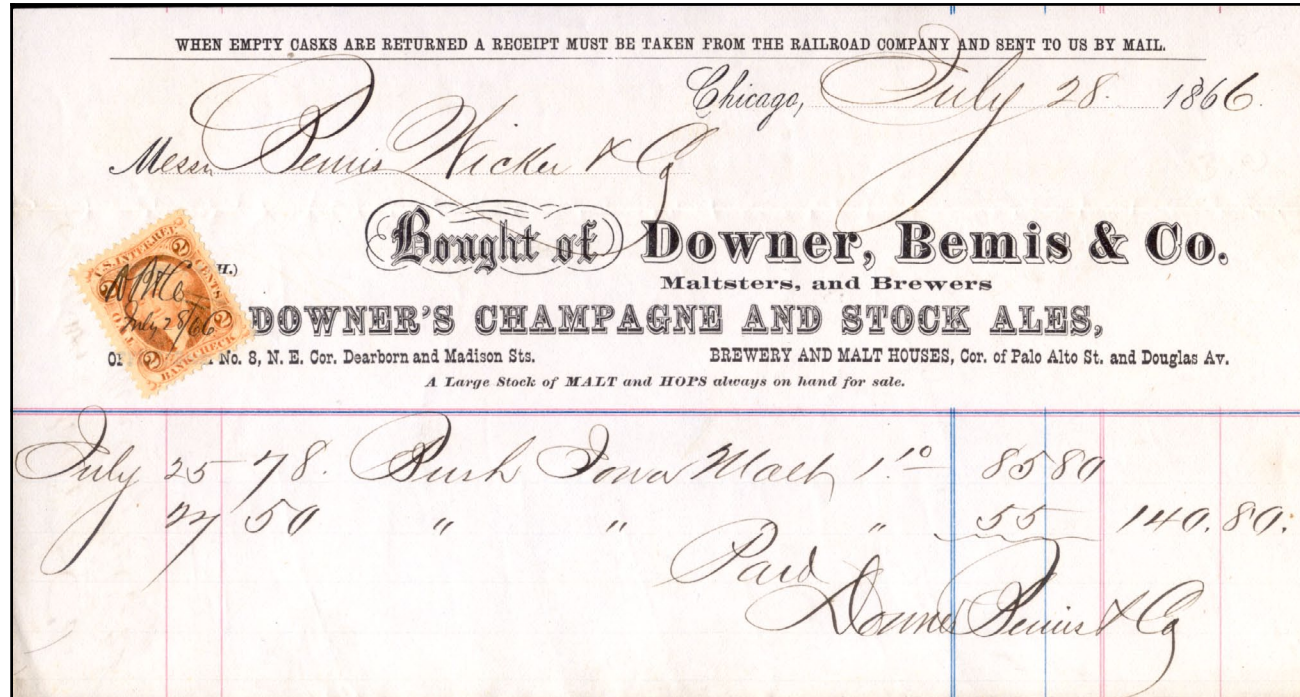 WHEN EMPTY CASKS ARE RETURNED A RECEIPT MUST BE TAKEN FROM THE RAILROAD COMPANY AND SENT TO US BY MAIL.
Chicago, July 28. 1866.
Messrs Bemis Wicker & Co
Bought of Downer, Bemis & Co.
H.)
Maltsters, and Brewers
DOWNER'S CHAMPAGNE AND STOCK ALES,
No. 8, N. E. Cor. Dearborn and Madison Sts. BREWERY AND MALT HOUSES, Cor. of Palo Alto St. and Douglas Av.
A Large Stock of MALT and HOPS always on hand for sale.
U.S. INTER. REV.
2 CENTS 2
July 28/66
2 BANK CHECK 2
July 25 78. Bush Iowa Malt 1.10 85 80
27 50 " " " 55 140.80.
Paid
Downer Bemis & Co